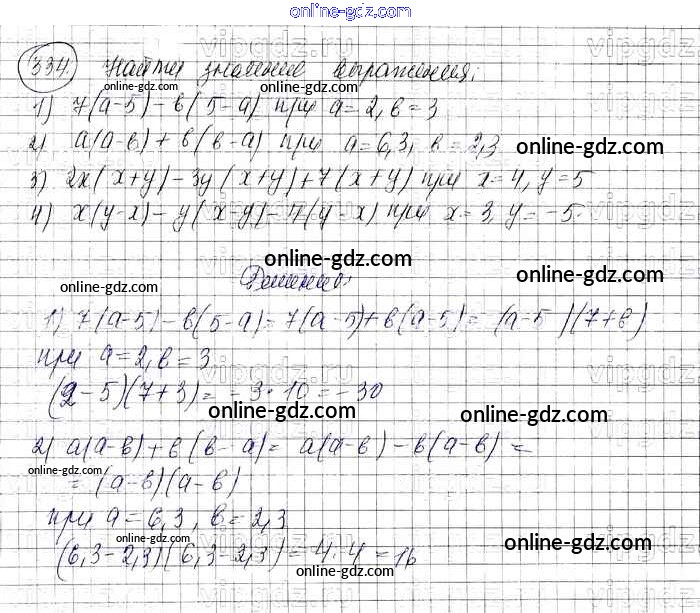 online-gdz.com
334. Найти значение выражения:
1) 7(a-5)-в(5-a) при a=2, в=3
2) a(a-в)+в(в-a) при a=6,3, в=2,3
online-gdz.com
3) 2x(x+y)-3y(x+y)+7(x+y) при x=4, y=5
4) x(y-x)-y(x-y)-7(y-x) при x=3, y=-5.
online-gdz.com
online-gdz.com
online-gdz.com
Решение:
1) 7(a-5)-в(5-a)=7(a-5)+в(a-5)=(a-5)(7+в)
при a=2, в=3
(2-5)(7+3)=-3·10=-30
online-gdz.com
online-gdz.com
2) a(a-в)+в(в-a)=a(a-в)-в(a-в)=
online-gdz.com
=(a-в)(a-в)
при a=6,3, в=2,3
online-gdz.com
online-gdz.com
(6,3-2,3)(6,3-2,3)=4·4=16
online-gdz.com